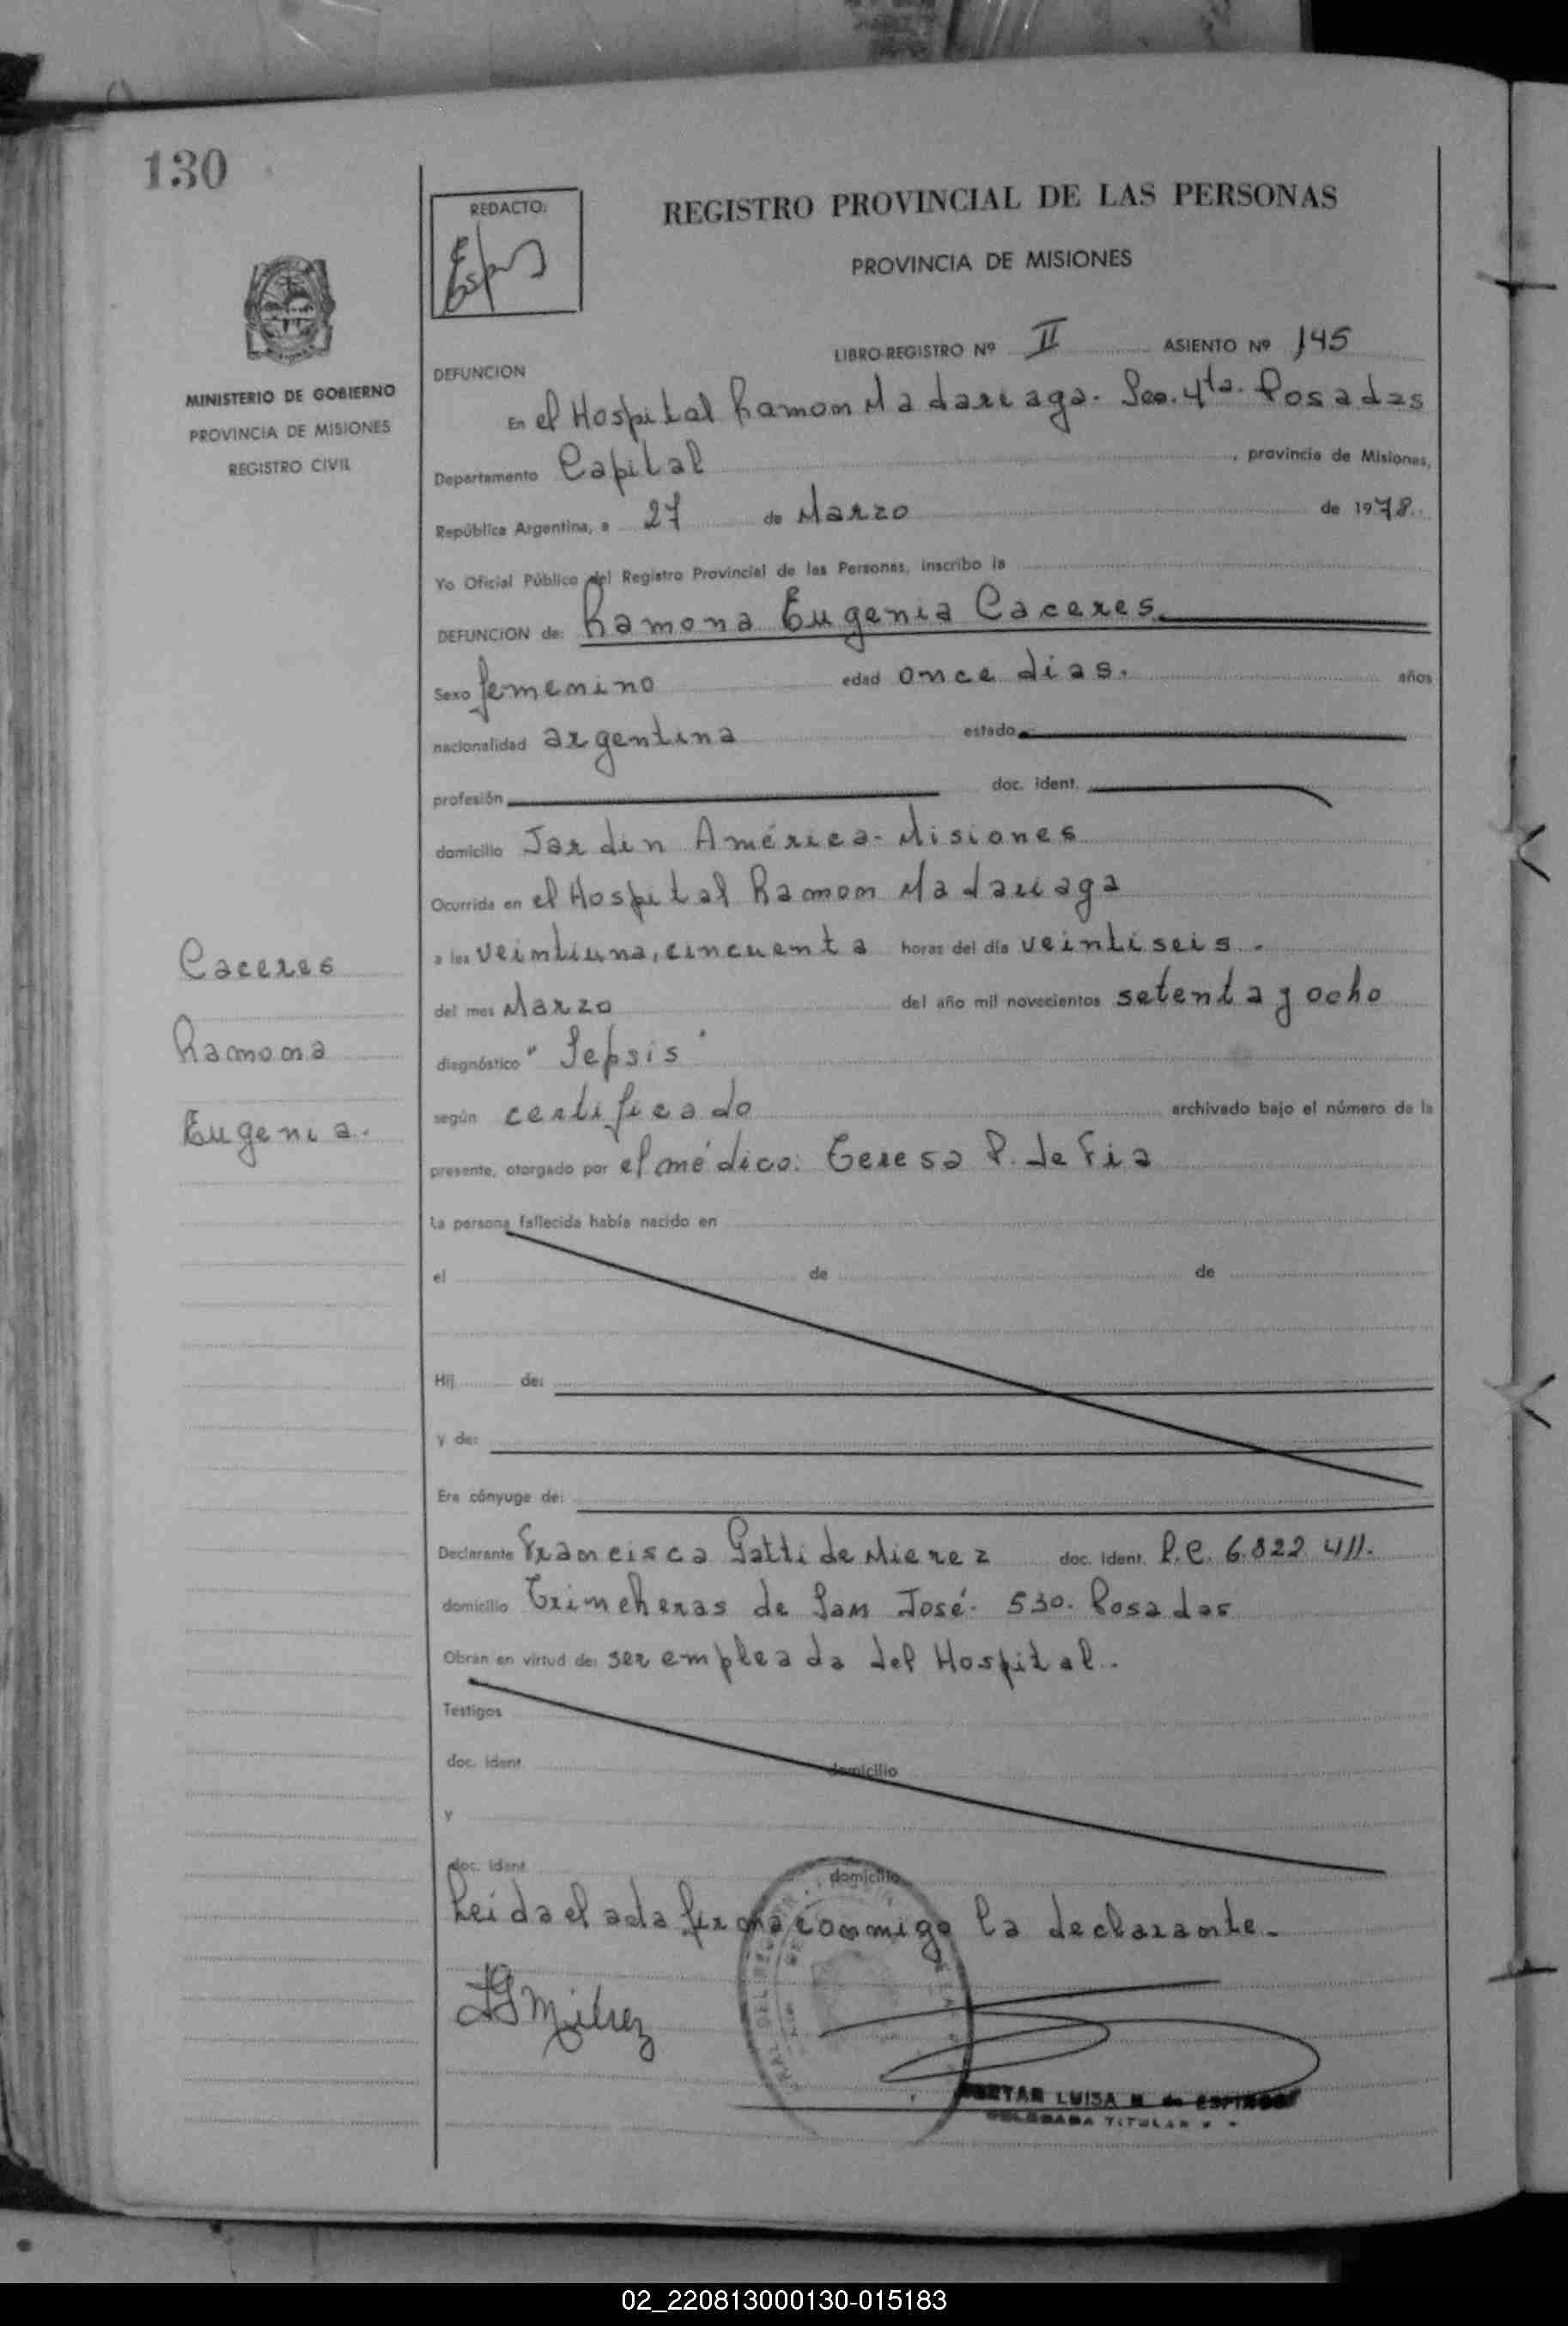 130
REDACTO:
REGISTRO PROVINCIAL DE LAS PERSONAS
PROVINCIA DE MISIONES
MINISTERIO DE GOBIERNO
PROVINCIA DE MISIONES
REGISTRO CIVIL
LIBRO-REGISTRO Nº II ASIENTO Nº 145
DEFUNCION
En el Hospital Ramon Madariaga. Sec. 4ta. Posadas
Departamento Capital, provincia de Misiones,
República Argentina, a 27 de Marzo de 1978.
Yo Oficial Público del Registro Provincial de las Personas, inscribo la
DEFUNCION de: Ramona Eugenia Caceres
Sexo femenino edad once dias. años
nacionalidad argentina estado
profesión doc. ident.
domicilio Jardin América - Misiones
Ocurrida en el Hospital Ramon Madariaga
a las veintiuna, cincuenta horas del día veintiseis.
del mes Marzo del año mil novecientos setenta y ocho
diagnóstico "Sepsis"
según certificado archivado bajo el número de la
presente, otorgado por el médico: Teresa P. de
La persona fallecida había nacido en
el de de
Hij de:
y de:
Era cónyuge de:
Declarante Francisca Gatti de Mierez doc. ident. L.C. 6.822.411.
domicilio Trincheras de San José. 530. Posadas
Obran en virtud de: ser empleada del Hospital.
Testigos
doc. ident. domicilio
y
doc. ident. domicilio
Leida el acta firma conmigo la declarante.
LUISA M. de
DELEGADA TITULAR
Caceres
Ramona
Eugenia.
02_220813000130-015183